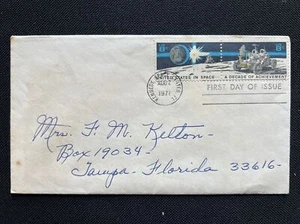 8c
8c
UNITED STATES IN SPACE... A DECADE OF ACHIEVEMENT
KENNEDY SPACE CENTER, FL
AUG 2
1971
FIRST DAY OF ISSUE
Mrs. F. M. Kelton-
Box 19034-
Tampa-Florida 33616-